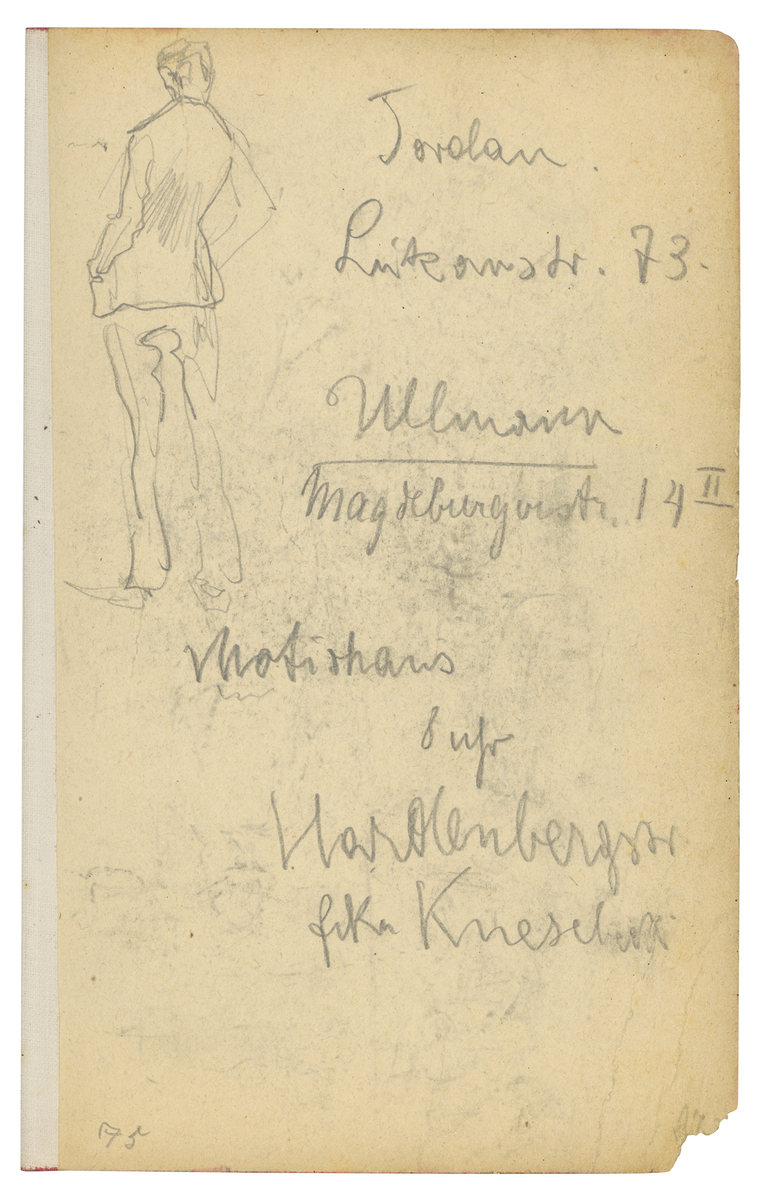 Jordan.
Lützowstr. 73.
Ullmann
Magdeburgerstr. 14 II
Motivhaus
8 Uhr
Hardenbergstr
Ecke Knesebeck
75